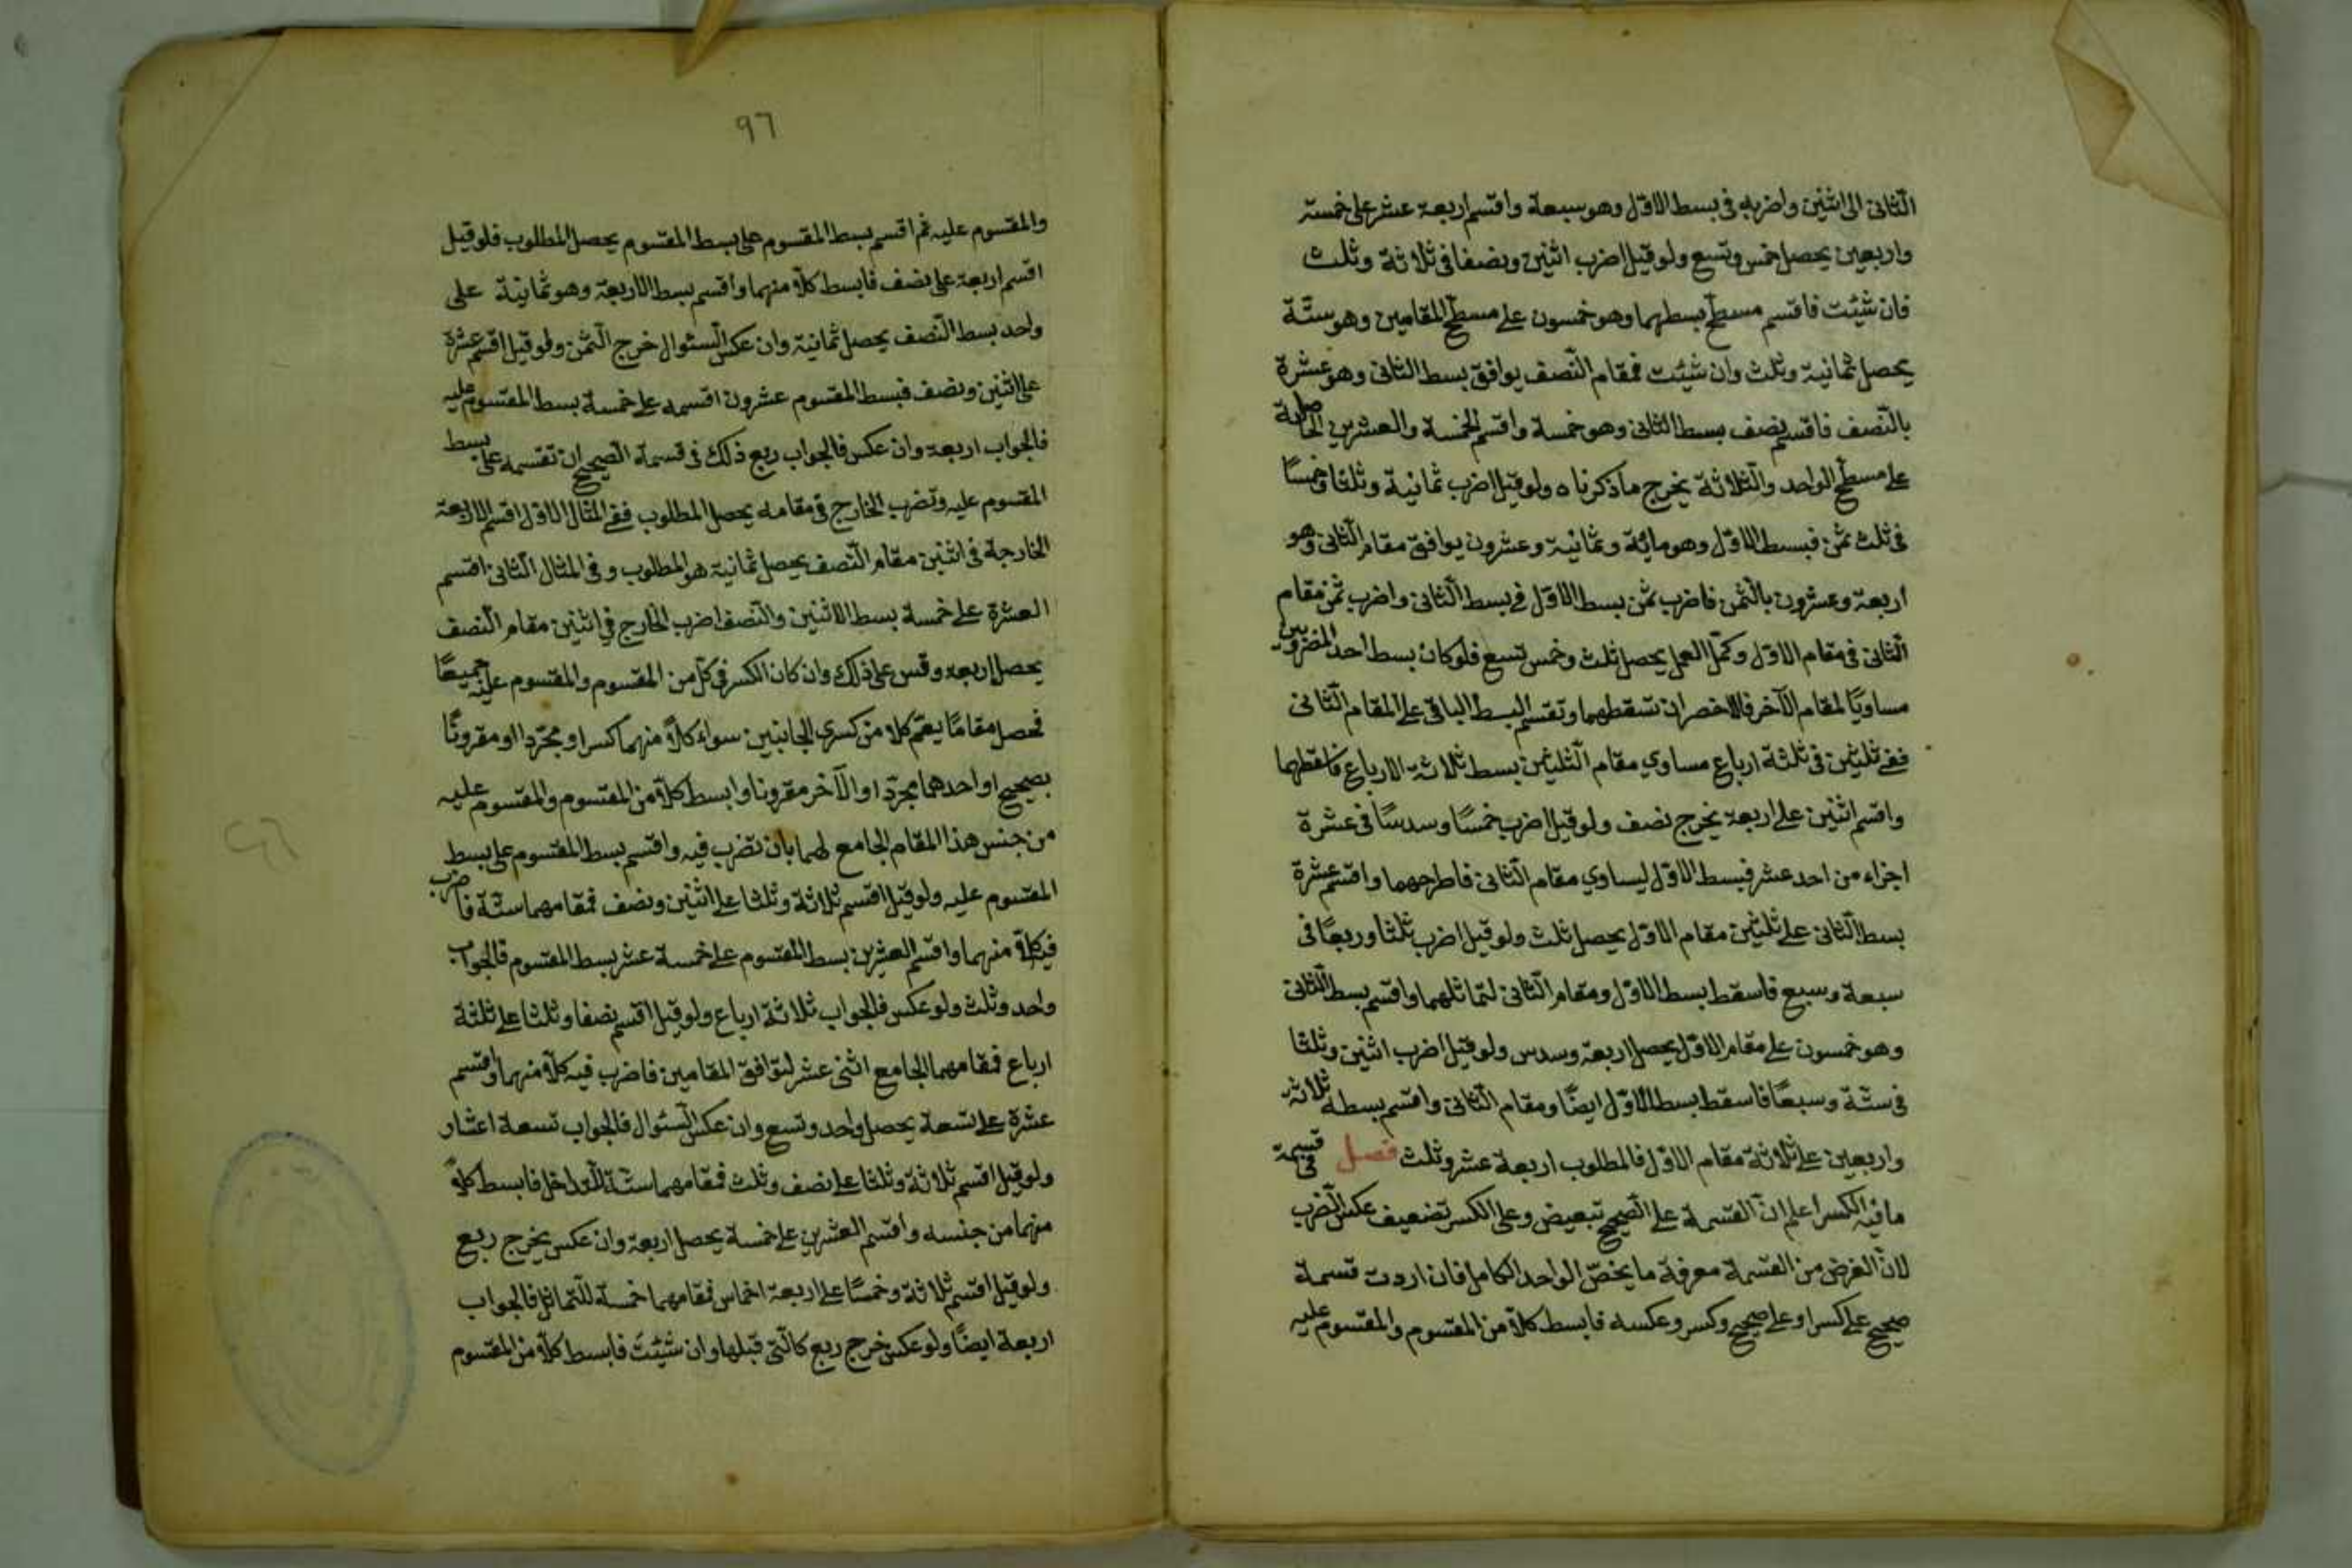 الثانى الى اثنين واضربه فى بسط الاول وهو سبعة واقسم اربعة عشر على خمسة
واربعين يحصل خمس وتسع ولو قيل اضرب اثنين ونصفا فى ثلاثة وثلث
فان شئت فاقسم مسطح بسطهما وهو خمسون على مسطح المقامين وهو ستة
يحصل ثمانية وثلث وان شئت فمقام النصف يوافق بسط الثانى وهو عشرة
بالنصف فاقسم نصف بسط الثانى وهو خمسة واقسم الخمسة والعشرين الحاصلة
على مسطح الواحد والثلاثة يخرج ما ذكرناه ولو قيل اضرب ثمانية وثلثا وخمسًا
فى ثلث ثمن فبسط الاول وهو مائة وثمانية وعشرون يوافق مقام الثانى وهو
اربعة وعشرون بالثمن فاضرب ثمن بسط الاول فى بسط الثانى واضرب ثمن مقام
الثانى فى مقام الاول وكمل العمل يحصل ثلث وخمس تسع فلو كان بسط احد المضروبين
مساويًا لمقام الآخر فالاخصر ان تسقطهما وتقسم البسط الباقى على المقام الثانى
ففى ثلثين فى ثلثة ارباع مساوي مقام الثلثين بسط ثلاثة الارباع فاسقطهما
واقسم اثنين على اربعة يخرج نصف ولو قيل اضرب خمسًا وسدسًا فى عشرة
اجزاء من احد عشر فبسط الاول ليساوي مقام الثانى فاطرحهما واقسم عشرة
بسط الثانى على ثلثين مقام الاول يحصل ثلث ولو قيل اضرب ثلثا وربعًا فى
سبعة وسبع فاسقط بسط الاول ومقام الثانى لتماثلهما واقسم بسط الثانى
وهو خمسون على مقام الاول يحصل اربعة وسدس ولو قيل اضرب اثنين وثلثا
فى ستة وسبعًا فاسقط بسط الاول ايضًا ومقام الثانى واقسم بسطه ثلاثة
واربعين على ثلاثة مقام الاول فالمطلوب اربعة عشر وثلث فصل فى قسمة
ما فيه الكسر اعلم ان القسمة على الصحيح تبعيض وعلى الكسر تضعيف عكس الضرب
لان الغرض من القسمة معرفة ما يخص الواحد الكامل فان اردت قسمة
صحيح على كسر او على صحيح وكسر وعكسه فابسط كلا من المقسوم والمقسوم عليه
٩٦
والمقسوم عليه ثم اقسم بسط المقسوم على بسط المقسوم يحصل المطلوب فلو قيل
اقسم اربعة على نصف فابسط كلا منهما واقسم بسط الاربعة وهو ثمانية على
واحد بسط النصف يحصل ثمانية وان عكس السئوال خرج الثمن ولو قيل اقسم عشرة
على اثنين ونصف فبسط المقسوم عشرون اقسمه على خمسة بسط المقسوم عليه
فالجواب اربعة وان عكس فالجواب ربع ذلك فى قسمة الصحيح ان تقسمه على بسط
المقسوم عليه وتضرب الخارج فى مقامه يحصل المطلوب ففى المثال الاول اقسم الاربعة
الخارجة فى اثنين مقام النصف يحصل ثمانية هو المطلوب وفى المثال الثانى اقسم
العشرة على خمسة بسط الاثنين والنصف اضرب الخارج فى اثنين مقام النصف
يحصل اربعة وقس على ذلك وان كان الكسر فى كل من المقسوم والمقسوم عليه جميعًا
فحصل مقامًا يعم كلا من كسرى الجانبين سواء كلا منهما كسرا ومجردا او مقرونًا
بصحيح او احدهما مجردا والآخر مقرونا وابسط كلا من المقسوم والمقسوم عليه
من جنس هذا المقام الجامع لهما بان تضرب فيه واقسم بسط المقسوم على بسط
المقسوم عليه ولو قيل اقسم ثلاثة وثلثا على اثنين ونصف فمقامهما ستة فاضرب
فيه كلا منهما واقسم العشرين بسط المقسوم على خمسة عشر بسط المقسوم فالجواب
واحد وثلث ولو عكس فالجواب ثلاثة ارباع ولو قيل اقسم نصفا وثلثا على ثلثة
ارباع فمقامهما الجامع اثنى عشر لتوافق المقامين فاضرب فيه كلا منهما واقسم
عشرة على تسعة يحصل واحد وتسع وان عكس السئوال فالجواب تسعة اعشار
ولو قيل اقسم ثلاثة وثلثا على نصف وثلث فمقامهما ستة للتداخل فابسط كلا
منهما من جنسه واقسم العشرين على خمسة يحصل اربعة وان عكس يخرج ربع
ولو قيل اقسم ثلاثة وخمسًا على اربعة اخماس فمقامهما خمسة للتماثل فالجواب
اربعة ايضًا ولو عكس خرج ربع كالتى قبلها وان شئت فابسط كلا من المقسوم